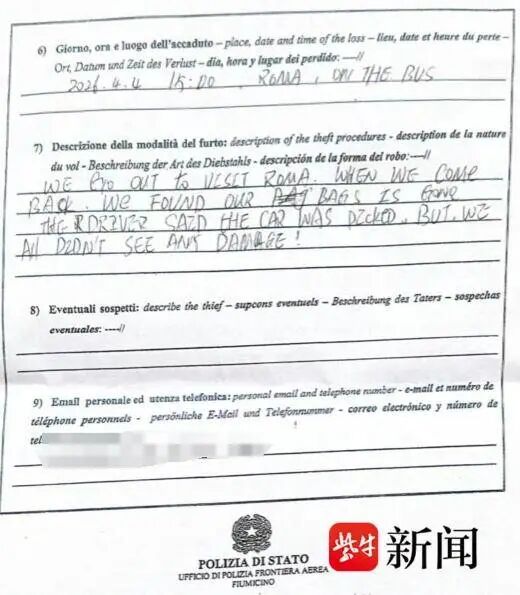 6) Giorno, ora e luogo dell'accaduto – place, date and time of the loss – lieu, date et heure du perte –
Ort, Datum und Zeit des Verlust – dia, hora y lugar del perdido: ----//
2026.4.4 15:00 , ROMA , ON THE BUS
7) Descrizione della modalità del furto: description of the theft procedures - description de la nature
du vol - Beschreibung der Art des Diebstahls - descripción de la forma del robo:----//
WE GO OUT to VISIT ROMA. WHEN WE COME
BACK. WE FOUND OUR BAGS IS GONE
THE DRIVER SAID THE CAR WAS PICKED, BUT WE
All DIDN'T SEE ANY DAMAGE!
8) Eventuali sospetti: describe the thief – supcons eventuels – Beschreibung des Taters – sospechas
eventuales: ----//
9) Email personale ed utenza telefonica: personal email and telephone number - e-mail et numéro de
téléphone personnels - persönliche E-Mail und Telefonnummer - correo electrónico y número de
tel
POLIZIA DI STATO
UFFICIO DI POLIZIA FRONTIERA AEREA
FIUMICINO
紫牛新闻